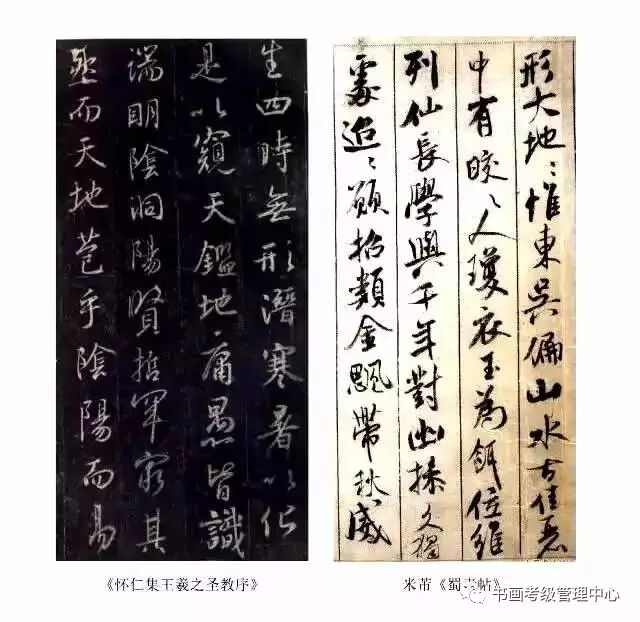 生四時無形潛寒暑以化
是以窺天鑑地庸愚皆識
端明陰洞陽賢哲罕窮其
然而天地苞乎陰陽而易
形大地〻惟東吳偏山水古佳麗
中有皎〻人瓊衣玉為餌位維
列仙長學與千年對幽操久獨
處迢〻願招類金颷帶秋威
《怀仁集王羲之圣教序》
米芾《蜀素帖》
书画考级管理中心